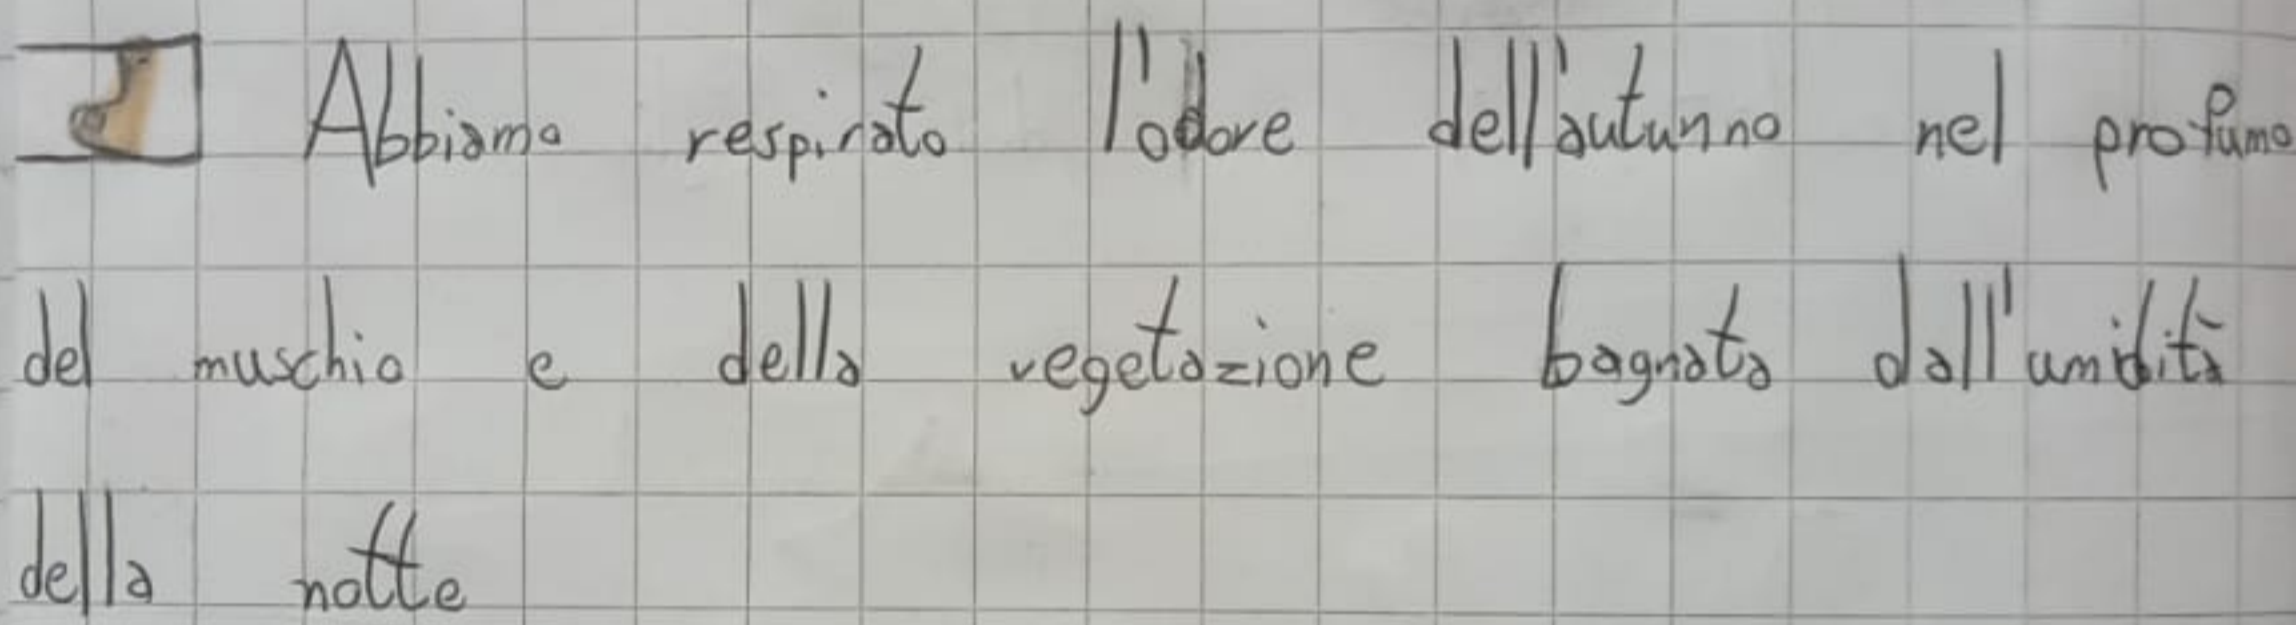 Abbiamo respirato l'odore dell'autunno nel profumo
del muschio e della vegetazione bagnata dall'umidità
della notte